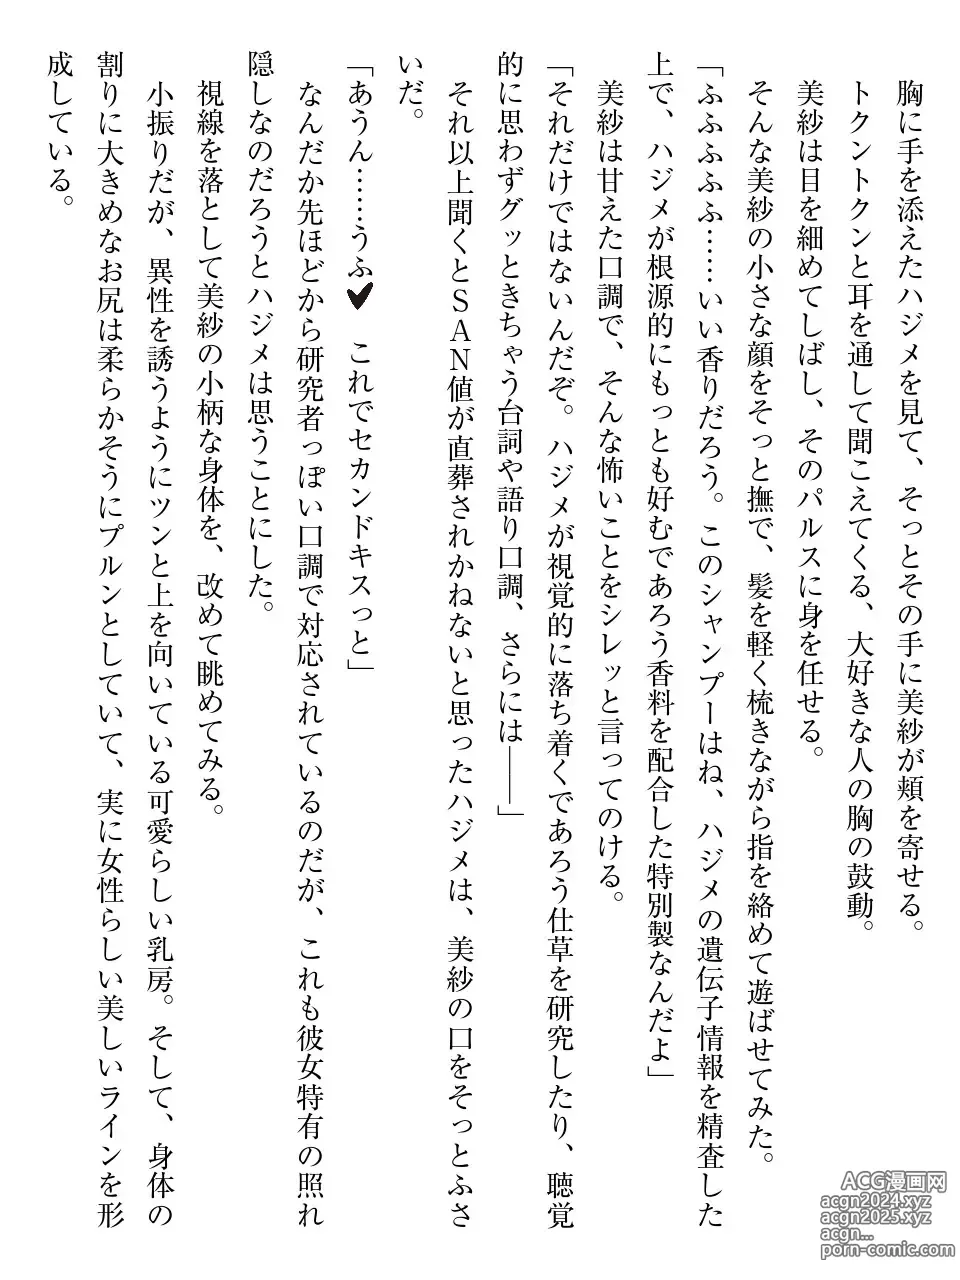 胸に手を添えたハジメを見て、そっとその手に美紗が頬を寄せる。
トクントクンと耳を通して聞こえてくる、大好きな人の胸の鼓動。
美紗は目を細めてしばし、そのパルスに身を任せる。
そんな美紗の小さな顔をそっと撫で、髪を軽く梳きながら指を絡めて遊ばせてみた。
「ふふふふ……いい香りだろう。このシャンプーはね、ハジメの遺伝子情報を精査した
上で、ハジメが根源的にもっとも好むであろう香料を配合した特別製なんだよ」
美紗は甘えた口調で、そんな怖いことをシレッと言ってのける。
「それだけではないんだぞ。ハジメが視覚的に落ち着くであろう仕草を研究したり、聴覚
的に思わずグッときちゃう台詞や語り口調、さらには――」
それ以上聞くとSAN値が直葬されかねないと思ったハジメは、美紗の口をそっとふさ
いだ。
「あうん……うふ♥ これでセカンドキスっと」
なんだか先ほどから研究者っぽい口調で対応されているのだが、これも彼女特有の照れ
隠しなのだろうとハジメは思うことにした。
視線を落として美紗の小柄な身体を、改めて眺めてみる。
小振りだが、異性を誘うようにツンと上を向いている可愛らしい乳房。そして、身体の
割りに大きめなお尻は柔らかそうにプルンとしていて、実に女性らしい美しいラインを形
成している。
ACG漫画网
acgn2024.xyz
acgn2025.xyz
acgn...
porn-comic.com